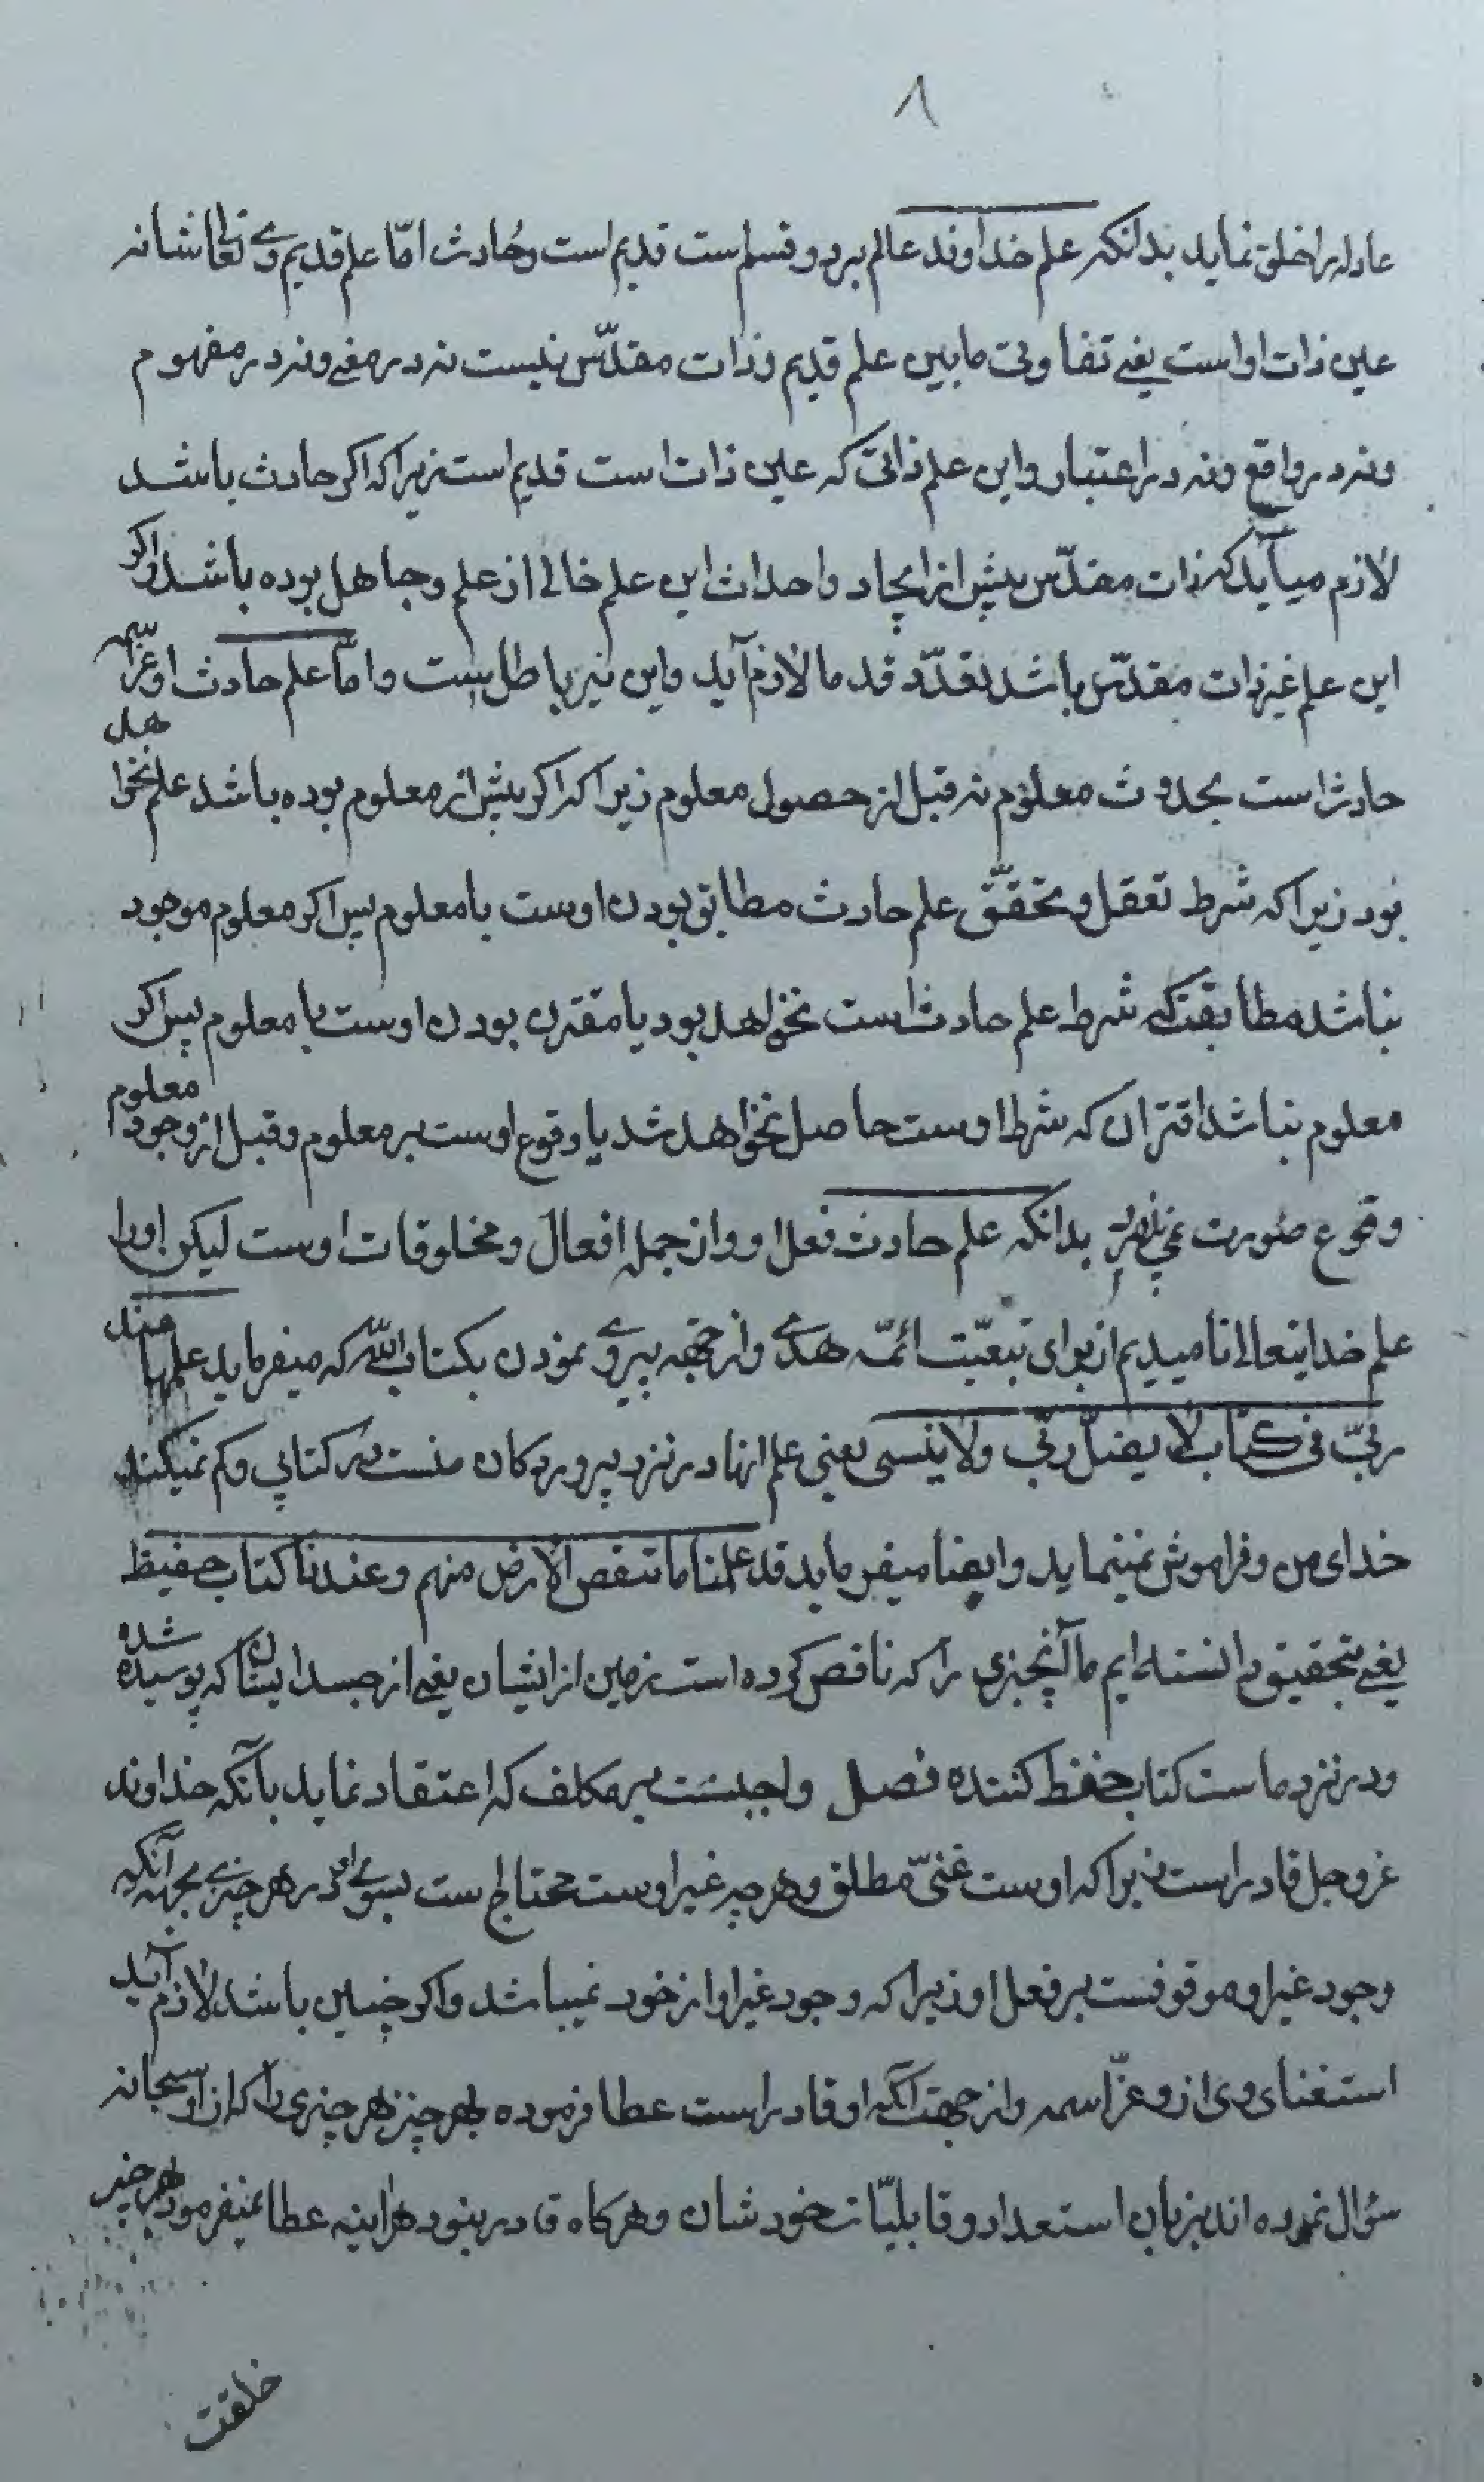 ۸
عادله را خلق نماید بدانکه علم خداوند عالم بر دو قسم است قدیم است و حادث امّا علم قدیم وی تعالی شانه
عین ذات او است یعنی تفاوتی مابین علم قدیم و ذات مقدّس نیست نه در معنی و نه در مفهوم
و نه در واقع و نه در اعتبار و این علم ذاتی که عین ذات است قدیم است زیرا که اکر حادث باشد
لازم میآید که ذات مقدّس پیش از ایجاد و احداث این علم خالی از علم و جاهل بوده باشد و اکر
این علم غیر ذات مقدّس باشد تعدّد قدما لازم آید و این نیز باطل است و امّا علم حادث او عزّ اسمه
حادث است بحدوث معلوم نه قبل از حصول معلوم زیرا که اکر پیش از معلوم بوده باشد علم نخواهد
بود زیرا که شرط تعقل و تحقّق علم حادث مطابق بودن اوست با معلوم پس اکر معلوم موجود
نباشد مطابقت که شرط علم حادث است نخواهد بود یا مقترن بودن اوست با معلوم پس اکر
معلوم نباشد اقتران که شرط اوست حاصل نخواهد شد یا وقوع اوست بر معلوم و قبل از وجود معلوم
وقوع صورت نمی پذیرد بدانکه علم حادث فعل او و از جمله افعال و مخلوقات اوست لیکن او را
علم خدایتعالی نامیدیم از برای تبعیّت ائمّه هدی و از جهة پیروی نمودن بکتاب الله که میفرماید علمها عند
ربّی فی کتاب لا یضلّ ربّی ولا ینسی یعنی علم انها در نزد پروردکار منست در کتابی و کم نمیکند
خدای من و فراموش نمینماید و ایضا میفرماید قد علمنا ما تنقص الارض منهم وعندنا کتاب حفیظ
یعنی بتحقیق دانسته ایم ما آنچیزی را که ناقص کرده است زمین از ایشان یعنی از جسد ایشان که پوسیده شده
و در نزد ماست کتاب حفظ کننده فصل واجبست بر مکلف که اعتقاد نماید بآنکه خداوند
عزوجل قادر است زیرا که اوست غنیّ مطلق و هر چه غیر اوست محتاج است بسوی او در هر چیزی بجهة آنکه
وجود غیر او موقوفست بر فعل او زیرا که وجود غیر او از خود نمیباشد و اکر چنین باشد لازم آید
استغنای وی از و عزّ اسمه و از جهت آنکه او قادر است عطا فرموده بهر چیز هر چیزی را که از او سبحانه
سؤال نموده اند بزبان استعداد و قابلیّات خودشان و هرکاه قادر نبود هراینه عطا نمیفرمود بهر چیز
خلقت